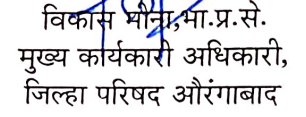 विकास मीना,भा.प्र.से.
मुख्य कार्यकारी अधिकारी,
जिल्हा परिषद औरंगाबाद